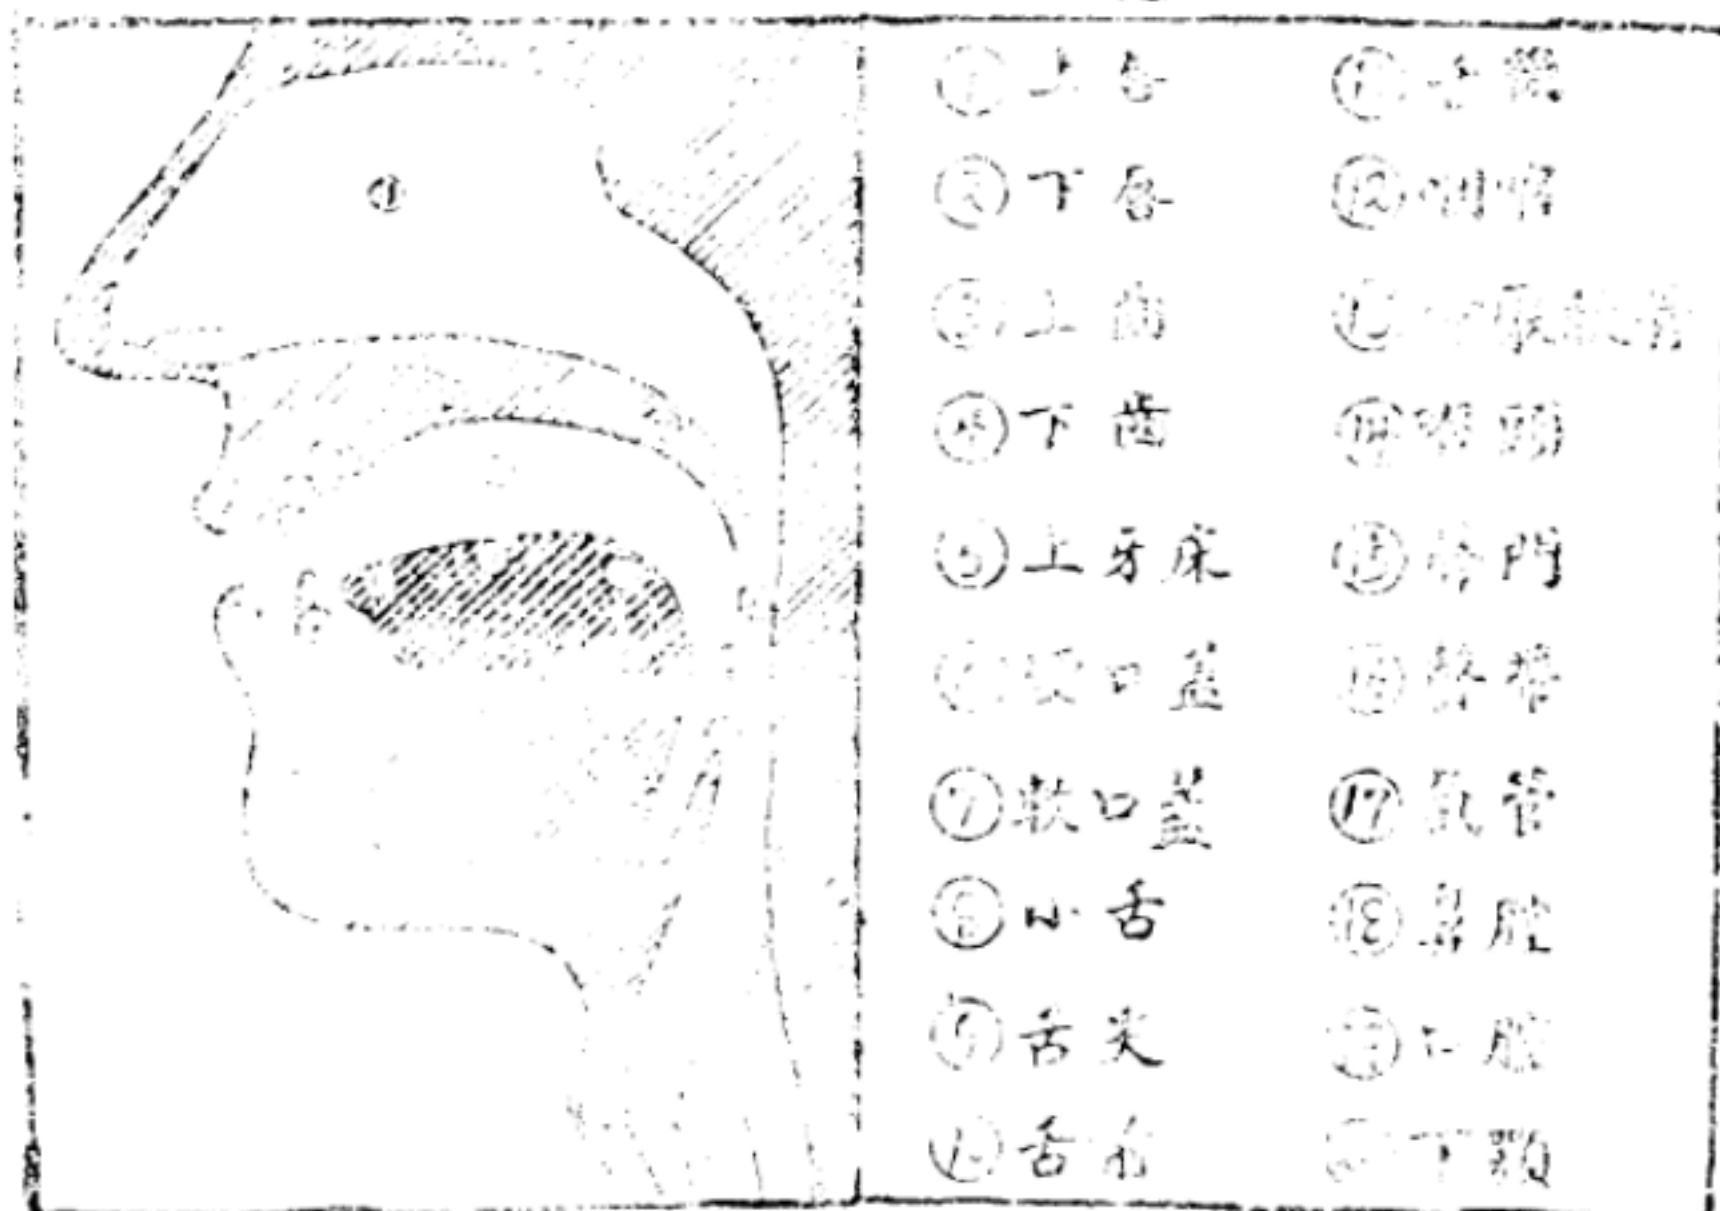 ① 上唇
② 下唇
③ 上齒
④ 下齒
⑤ 上牙床
⑥ 硬口蓋
⑦ 軟口蓋
⑧ 小舌
⑨ 舌尖
⑩ 舌
⑪ 舌
⑫ 咽
⑭ 喉頭
⑮ 門
⑯ 聲帶
⑰ 氣管
⑱ 鼻腔
⑲ 口腔
下顎